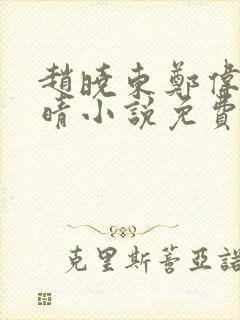 趙曉東鄭偉
晴小說免費
克里斯蒂亞諾